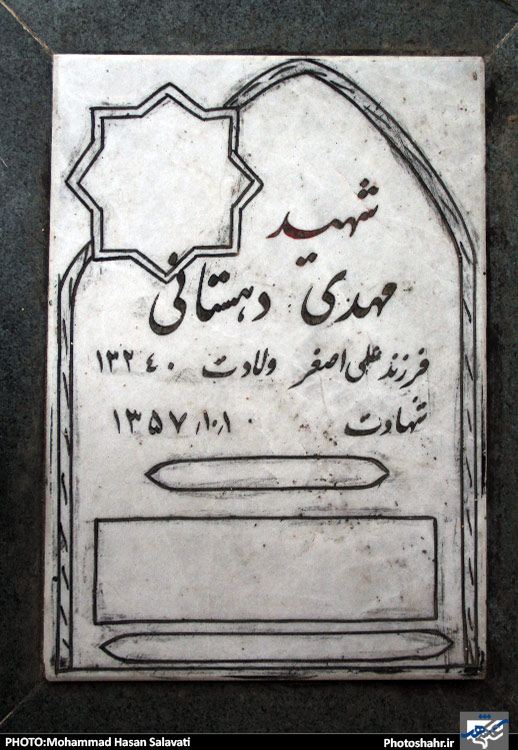 شهید
مهدی دهستانی
فرزند علی اصغر ولادت ۱۳۲۴۰
شهادت ۱۳۵۷/۱۰/۱۰
PHOTO:Mohammad Hasan Salavati
Photoshahr.ir